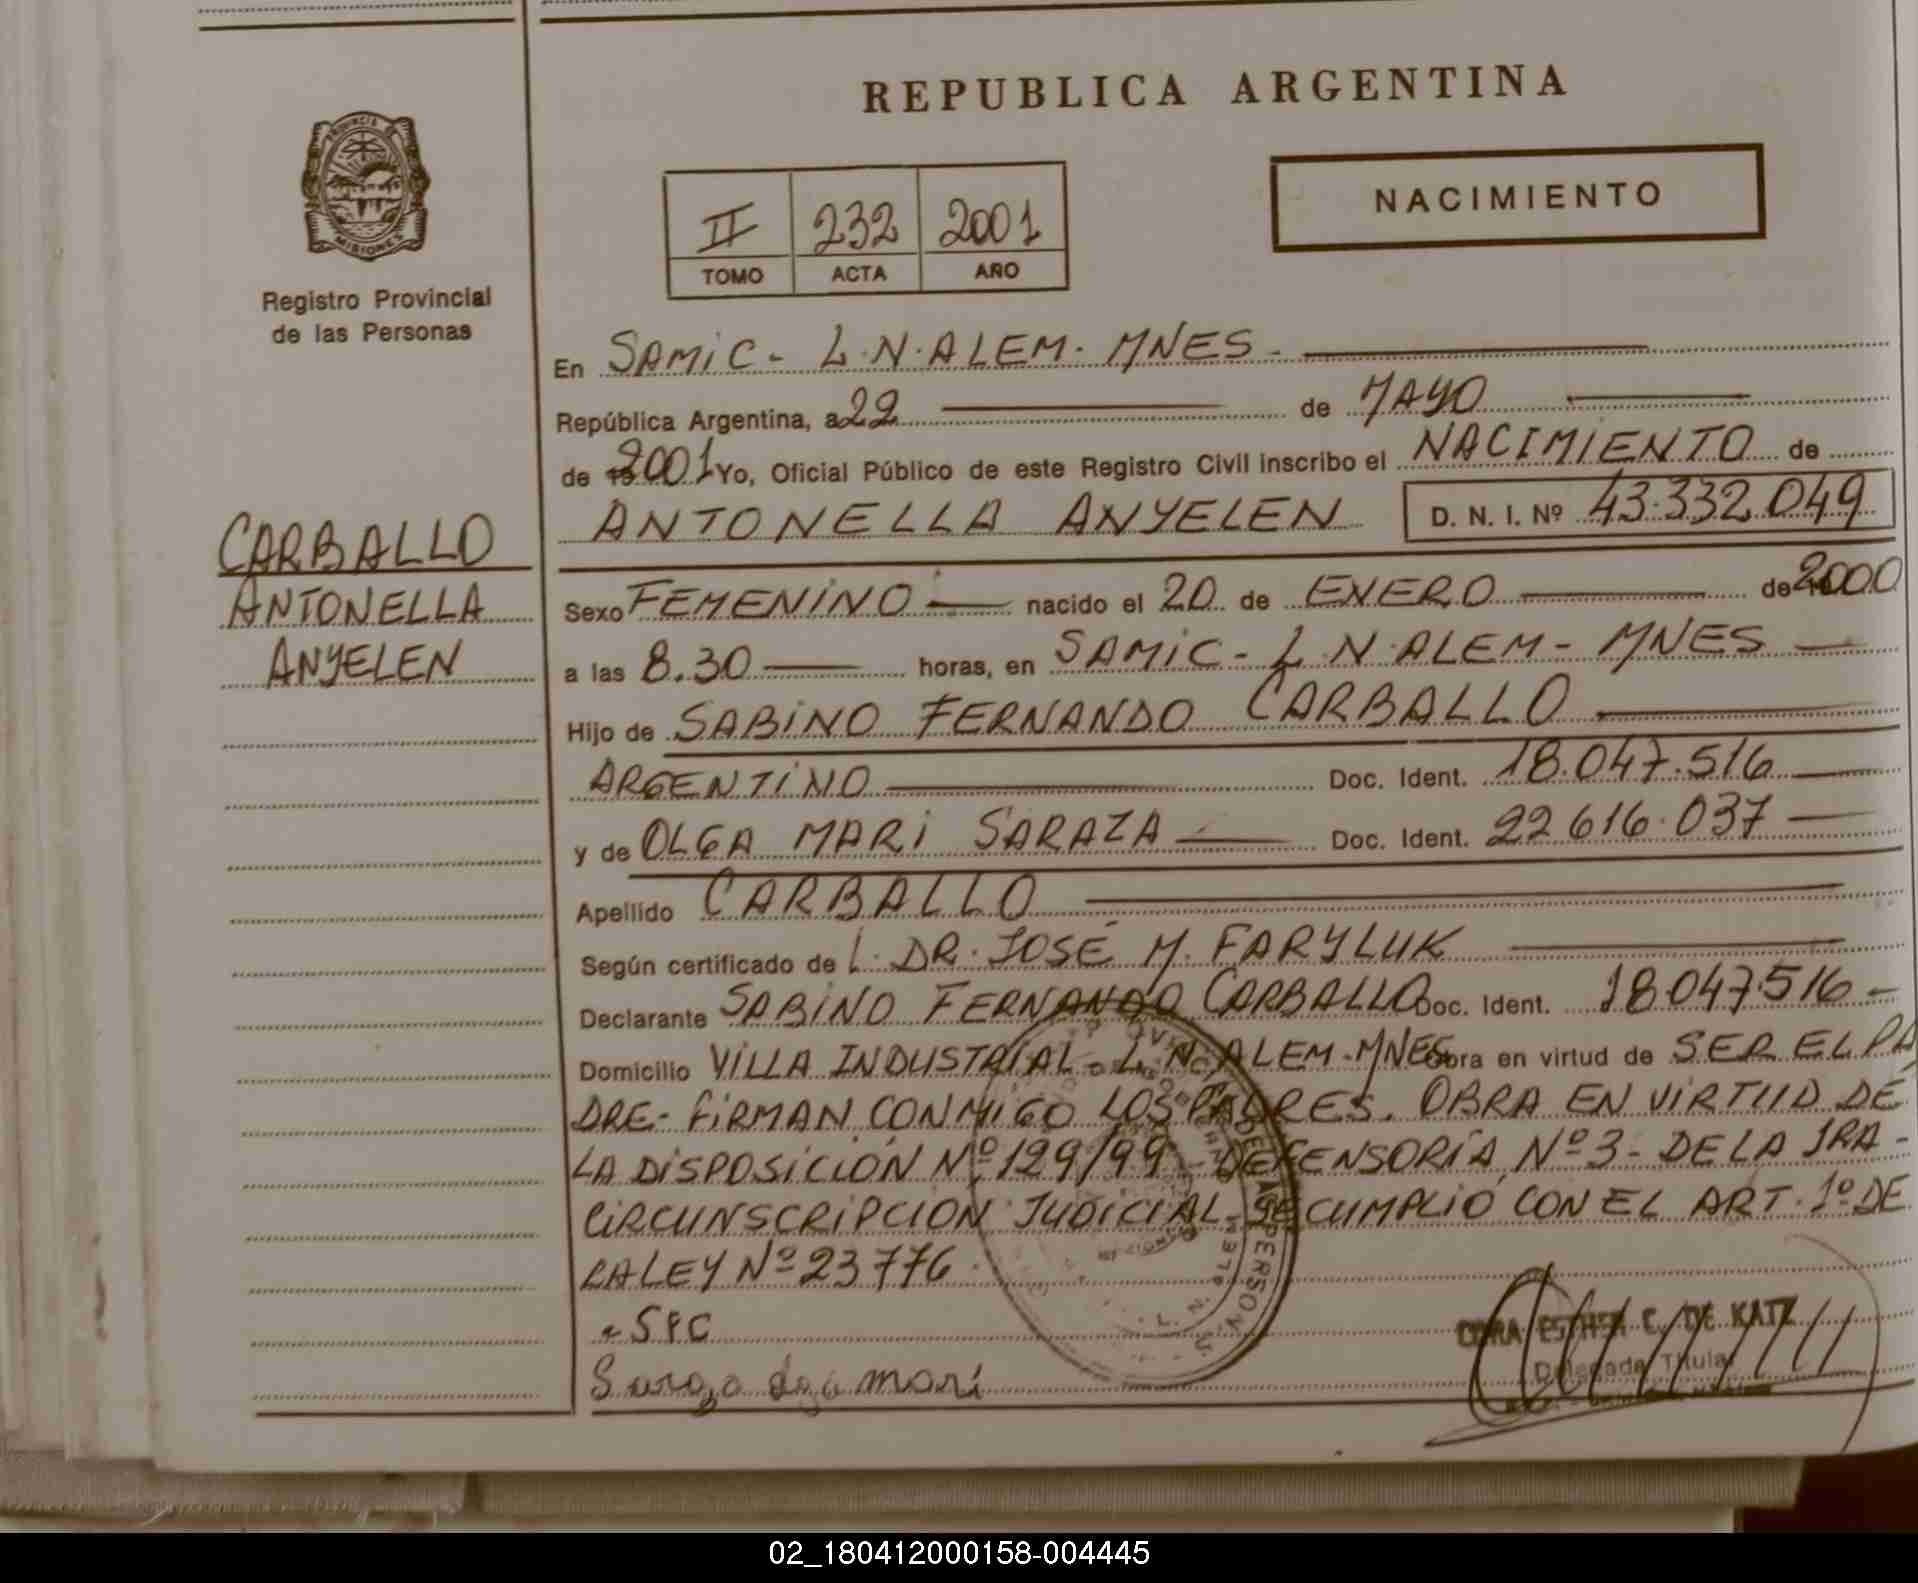 REPUBLICA ARGENTINA
PROVINCIA DE
MISIONES
Registro Provincial
de las Personas
II 232 2001
TOMO ACTA AÑO
NACIMIENTO
En SAMIC - L.N.ALEM. MNES -
República Argentina, a 22 de MAYO
de 2001 Yo, Oficial Público de este Registro Civil inscribo el NACIMIENTO de
ANTONELLA ANYELEN D. N. I. Nº 43.332.049
CARBALLO
ANTONELLA
ANYELEN
Sexo FEMENINO nacido el 20 de ENERO de 2000
a las 8.30 horas, en SAMIC - L.N.ALEM - MNES
Hijo de SABINO FERNANDO CARBALLO
ARGENTINO Doc. Ident. 18.047.516
y de OLGA MARI SARAZA Doc. Ident. 22.616.037
Apellido CARBALLO
Según certificado de L. DR. JOSÉ M. FARYLUK
Declarante SABINO FERNANDO CARBALLO Doc. Ident. 18.047.516 -
Domicilio VILLA INDUSTRIAL - L.N.ALEM - MNES Obra en virtud de SER EL PA
DRE - FIRMAN CONMIGO LOS PADRES. OBRA EN VIRTUD DE
LA DISPOSICIÓN Nº 129/99 - DEFENSORÍA Nº 3 - DE LA 1RA -
CIRCUNSCRIPCION JUDICIAL. SE CUMPLIO CON EL ART. 1º DE
LA LEY Nº 23776.
SFC
mari
CORA ESTHER C. DE KATZ
Delegada Titular
02_180412000158-004445